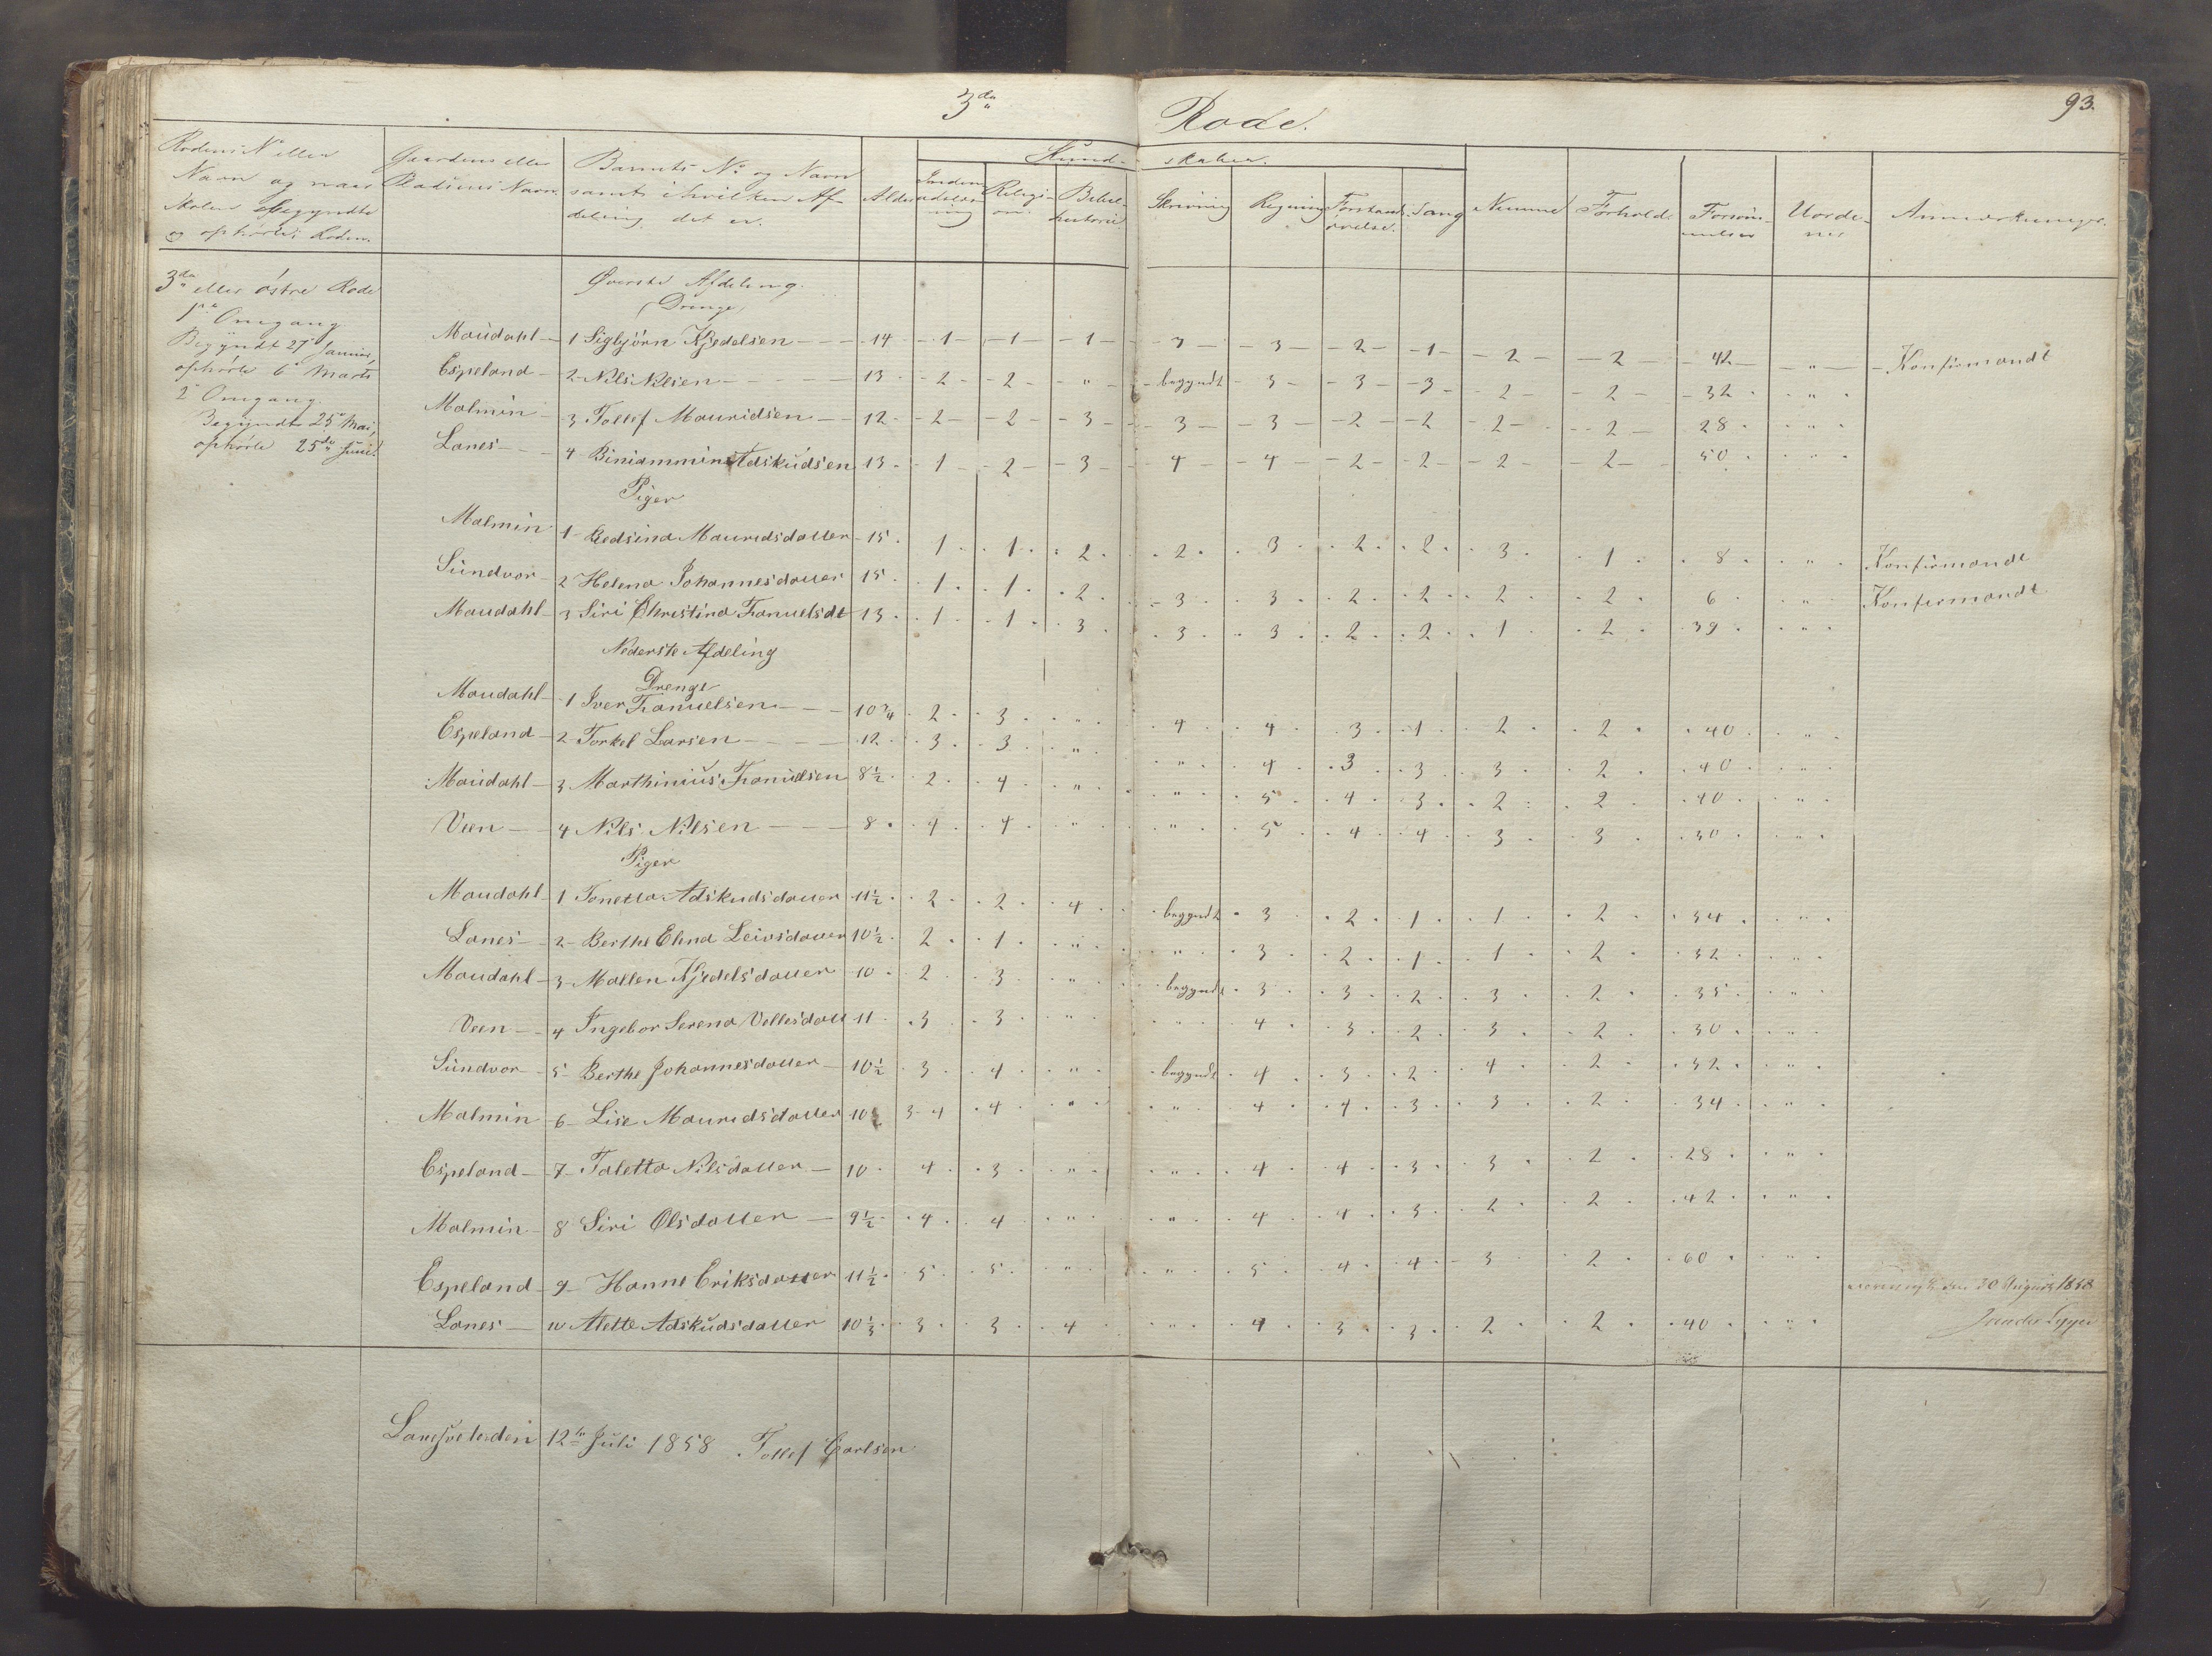 3die Rode. 93.
Rodens No eller Navn og naar Skolen begyndte og ophørte i Roden.
Gaardens eller Pladsens Navn.
Barnets No og Navn samt i hvilken Afdeling det er.
Alder
Kundskaber.
Indenadslæsning
Religion
Bibelhistorie
Skrivning
Regning
Forstandsøvelse.
Sang
Nemme
Forhold
Forsømmelser
Anmærkninger.
3die eller østre Rode
1ste Omgang
Begyndt 27 Januar,
ophørte 6 Marts
2 Omgang.
Begyndt 25 Mai,
ophørte 25de Juni.
Øverste Afdeling.
Drenge
Maudahl - 1 Sigbjörn Kjedelsen - 14 - 1 - 1 - 1 - 3 - 3 - 2 - 1 - 2 - 2 - 42 - " - Konfirmandt
Espeland - 2 - Nils Nilsen - 13 - 2 - 2 - " - begyndt - 3 - 3 - 3 - 2 - 2 - 32 "
Malmin - 3 Tollef Mauridsen - 12 - 2 - 2 - 3 - 3 - 3 - 2 - 2 - 2 - 2 - 28 "
Lanes - 4 Biniammin Adskudsen 13 - 1 - 2 - 3 - 4 - 4 - 2 - 2 - 2 - 2 - 50 "
Piger
Malmin 1 Redsina Mauridsdatter 15 1 1 2 2 3 2 2 3 1 8 " Konfirmandt
Sundvor - 2 Helena Johannesdatter 15 1 1 2 3 3 2 2 2 2 6 " Konfirmandt
Maudahl - 3 Siri Christina Tanuelsdt 13 1 1 3 3 3 2 2 1 2 39 "
Nederste Afdeling
Drenge
Maudahl - 1 Iver Tanuelsen - 10 3/4 2 3 " 4 4 3 1 2 2 40 "
Espeland - 2 - Torkel Larsen - 12 3 3 " " 4 3 3 3 2 40 "
Maudahl - 3 Marthinius Tanuelsen 8 1/2 2 4 " " 5 4 3 2 2 40 "
Veen - 4 Nils Nilsen - 8 4 4 " " 5 4 4 3 3 30 "
Piger
Maudahl 1 Tonetta Adskudsdatter 11 1/2 2 2 4 begyndt 3 2 1 1 2 34 "
Lanes - 2 - Berthe Elina Leivsdatter 10 1/2 2 1 " " 3 2 1 1 2 32 "
Maudahl - 3 - Mallen Kjedelsdatter 10 2 3 " begyndt 3 3 2 3 2 35 "
Veen - 4 Ingebor Serena 11 3 3 " " 4 3 2 3 2 30 "
Sundvor - 5 - Berthe Johannesdatter 10 1/2 3 4 " begyndt 4 3 2 4 2 32 "
Malmin 6 - Lise Mauridsdatter 10 3-4 4 " " 4 4 3 3 2 34 "
Espeland - 7 - Taletta Nilsdatter - 10 4 3 " " 4 4 3 3 2 28 "
Malmin - 8 Siri Olsdatter - 9 1/2 4 4 " " 4 4 3 2 2 42 "
Espeland - 9 - Hanne Eriksdatter 11 1/2 5 5 " " 5 4 4 3 2 60 "
Lanes - 10 Alette Adskudsdatter 10 1/3 3 3 4 " 4 3 3 2 2 40 "
den 30 August 1858
12te Juli 1858 Tollef Carlsen